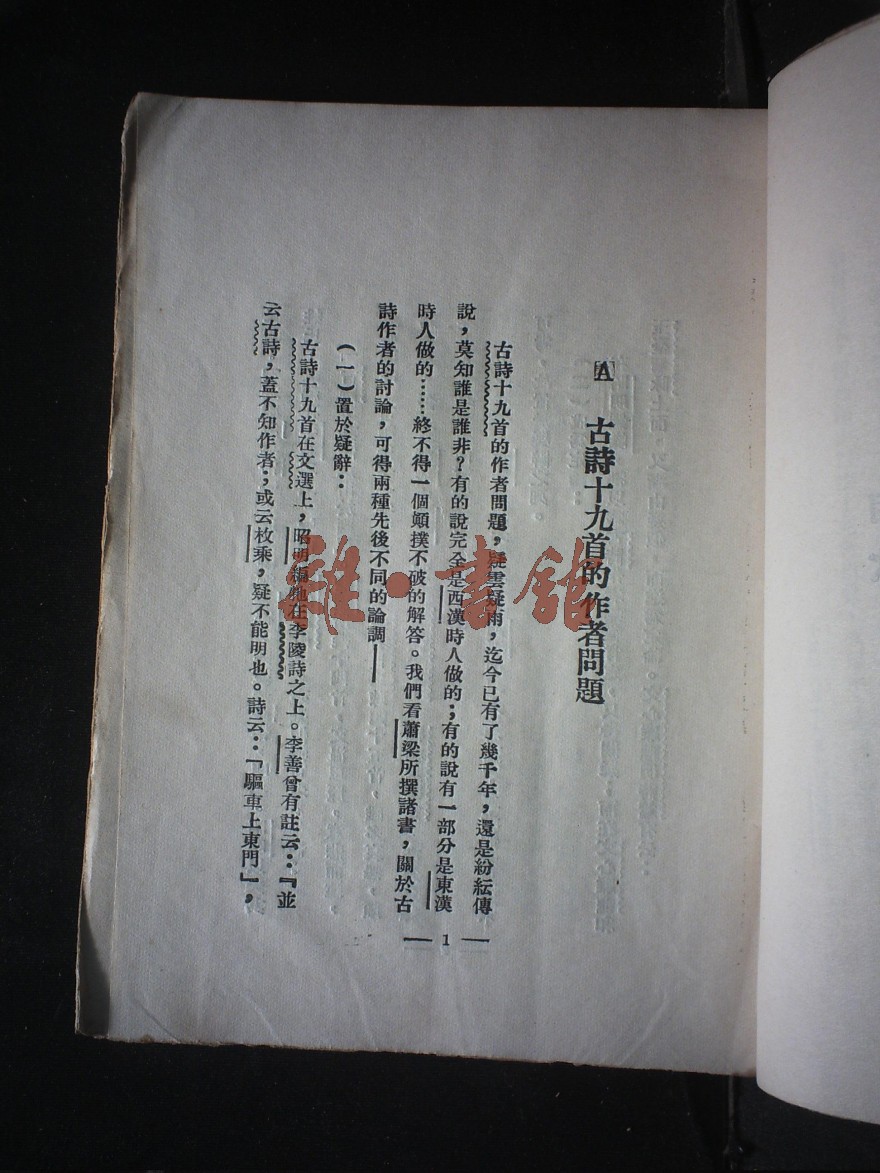 [A] 古詩十九首的作者問題
古詩十九首的作者問題，疑雲疑雨，迄今已有了幾千年，還是紛紜傳
說，莫知誰是誰非？有的說完全是西漢時人做的；有的說有一部分是東漢
時人做的……終不得一個顛撲不破的解答。我們看蕭梁所撰諸書，關於古
詩作者的討論，可得兩種先後不同的論調——
（一）置於疑辭：
古詩十九首在文選上，昭明編他在李陵詩之上。李善曾有註云：『並
云古詩，蓋不知作者；或云枚乘，疑不能明也。詩云：「驅車上東門」，
— 1 —
雜·書館